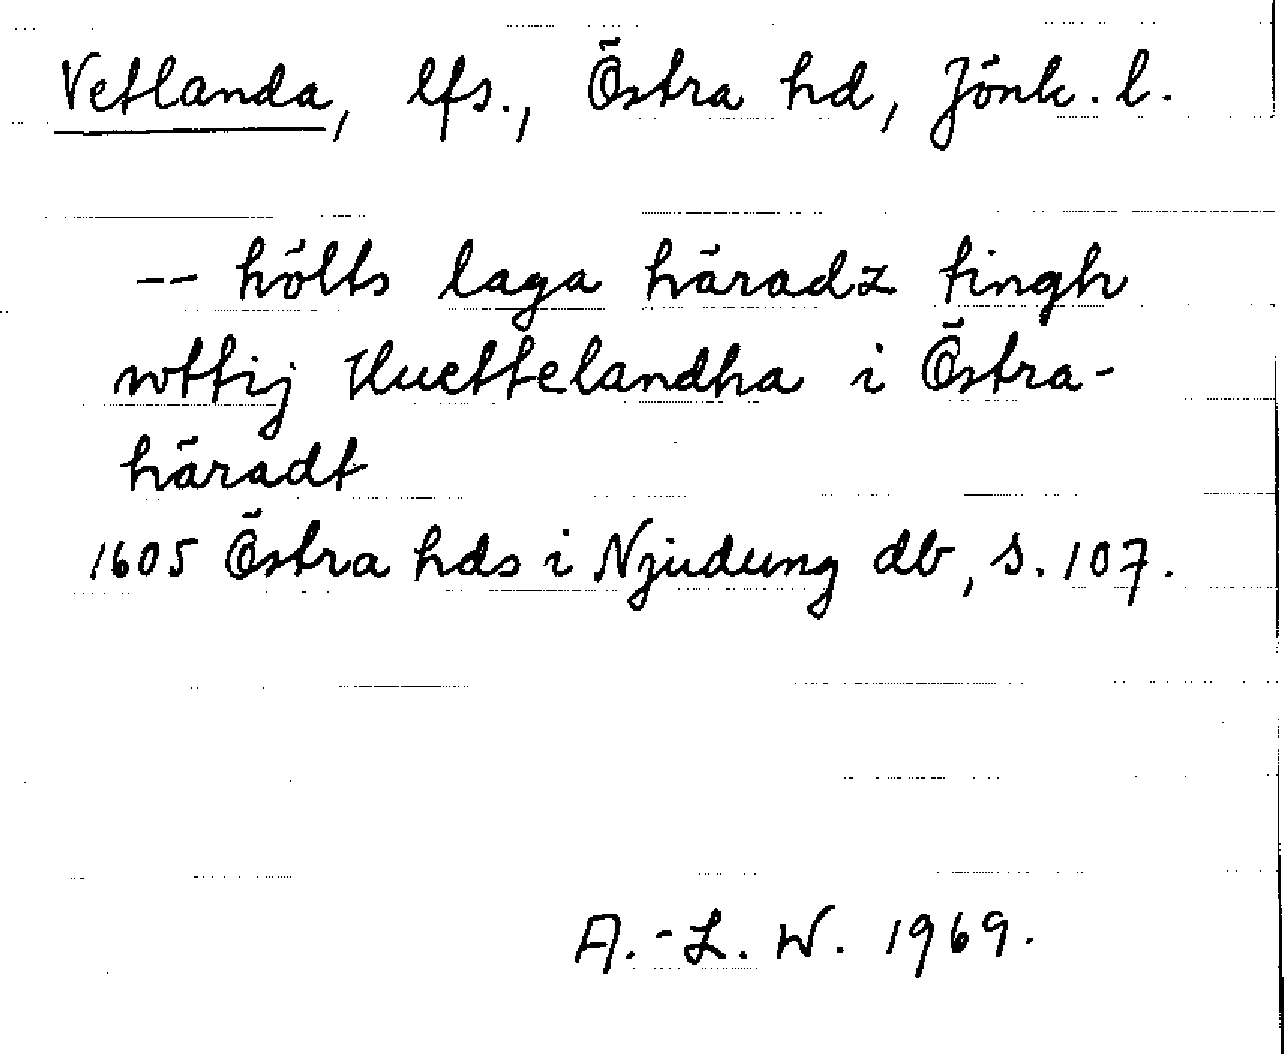 Vetlanda, lfs., Östra hd, Jönk. l.
-- hölts laga häradz tingh
wttij Huettelandha i Östra-
häradt
1605 Östra hds i Njudung db, s. 107.
A.-L. W. 1969.